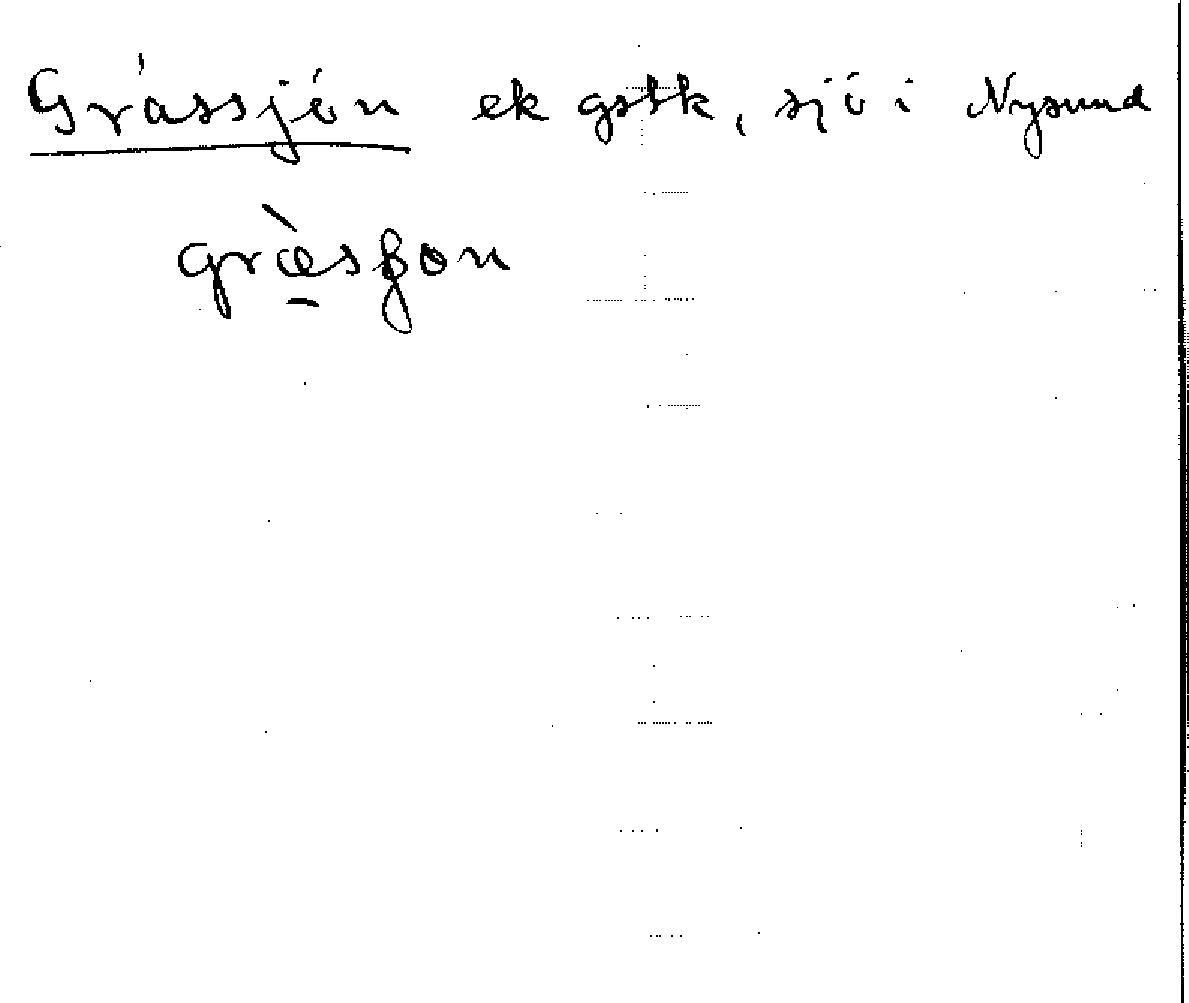 Grässjön ek gstk, sjö i Nysund
græ̠̀sʃɵn